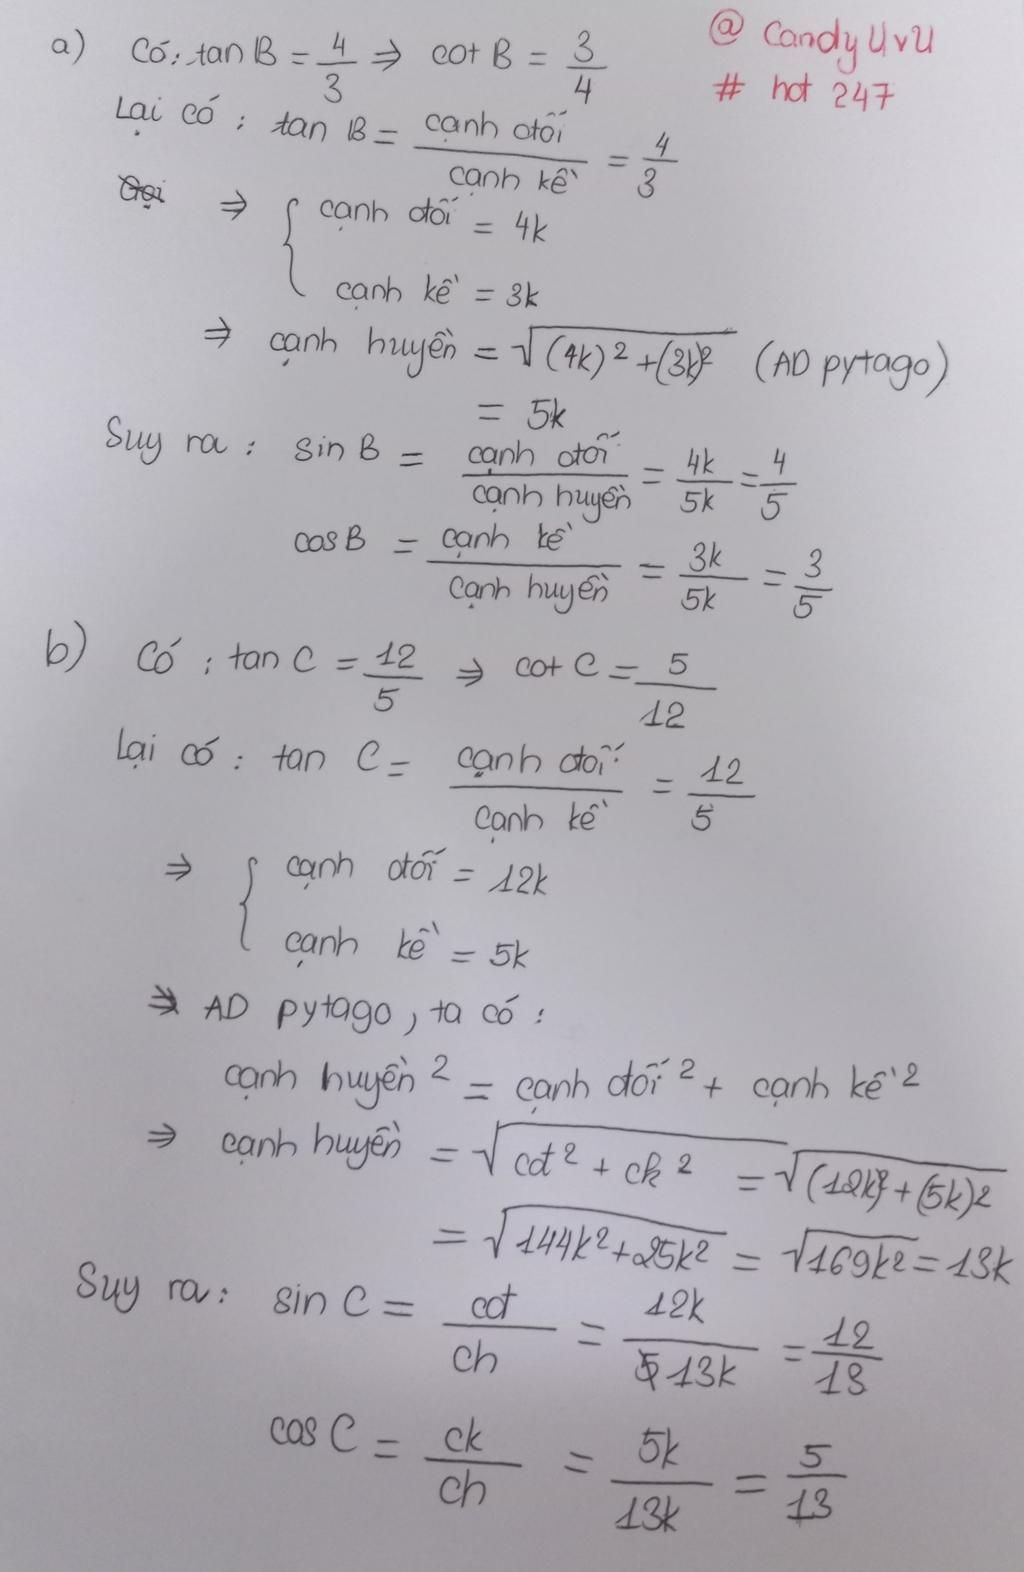 a) Có: tan B = 4/3 ⇒ cot B = 3/4
@ Candy UvU
# hot 247
Lại có: tan B = cạnh đối/cạnh kề = 4/3
Gọi ⇒ { cạnh đối = 4k
cạnh kề = 3k
⇒ cạnh huyền = √((4k)² + (3k)²) (AD pytago)
= 5k
Suy ra: sin B = cạnh đối/cạnh huyền = 4k/5k = 4/5
cos B = cạnh kề/cạnh huyền = 3k/5k = 3/5
b) Có: tan C = 12/5 ⇒ cot C = 5/12
Lại có: tan C = cạnh đối/cạnh kề = 12/5
⇒ { cạnh đối = 12k
cạnh kề = 5k
⇒ AD pytago, ta có:
cạnh huyền² = cạnh đối² + cạnh kề²
⇒ cạnh huyền = √(cđ² + ck²) = √((12k)² + (5k)²)
= √(144k² + 25k²) = √(169k²) = 13k
Suy ra: sin C = cđ/ch = 12k/13k = 12/13
cos C = ck/ch = 5k/13k = 5/13